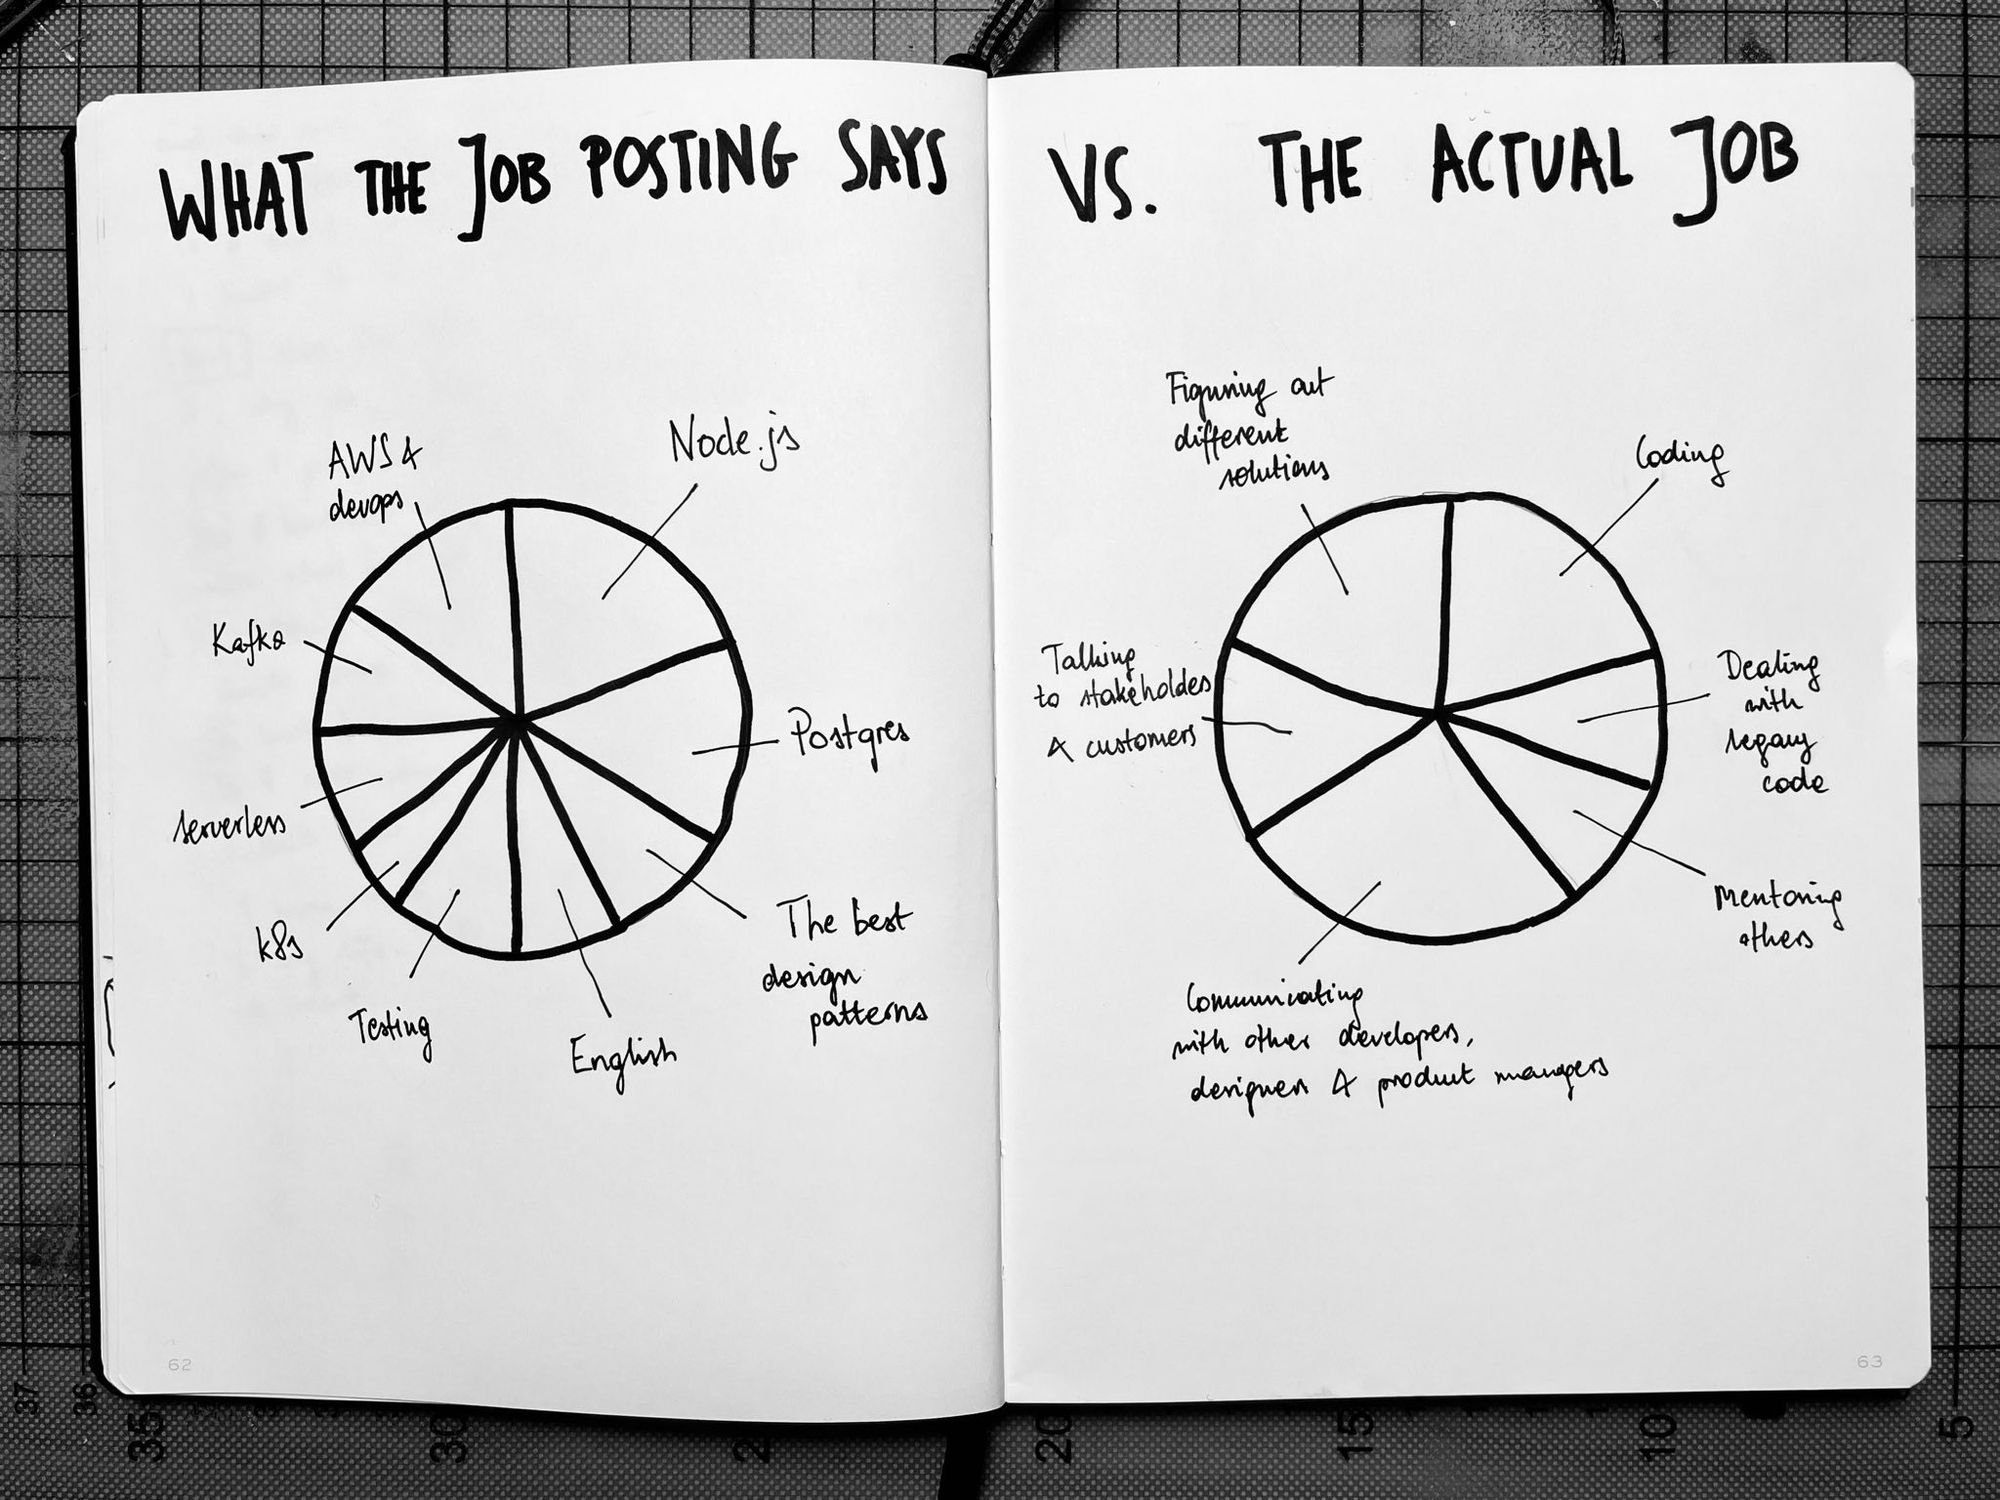 WHAT THE JOB POSTING SAYS
AWS &
devops
Node.js
Kafka
Postgres
serverless
The best
design
patterns
k8s
Testing
English
62
VS. THE ACTUAL JOB
Figuring out
different
solutions
Coding
Talking
to stakeholdes
& customers
Dealing
with
legacy
code
Mentoring
others
Communicating
with other developers,
designers & product managers
63
37
36
35
30
2
20
15
10
5